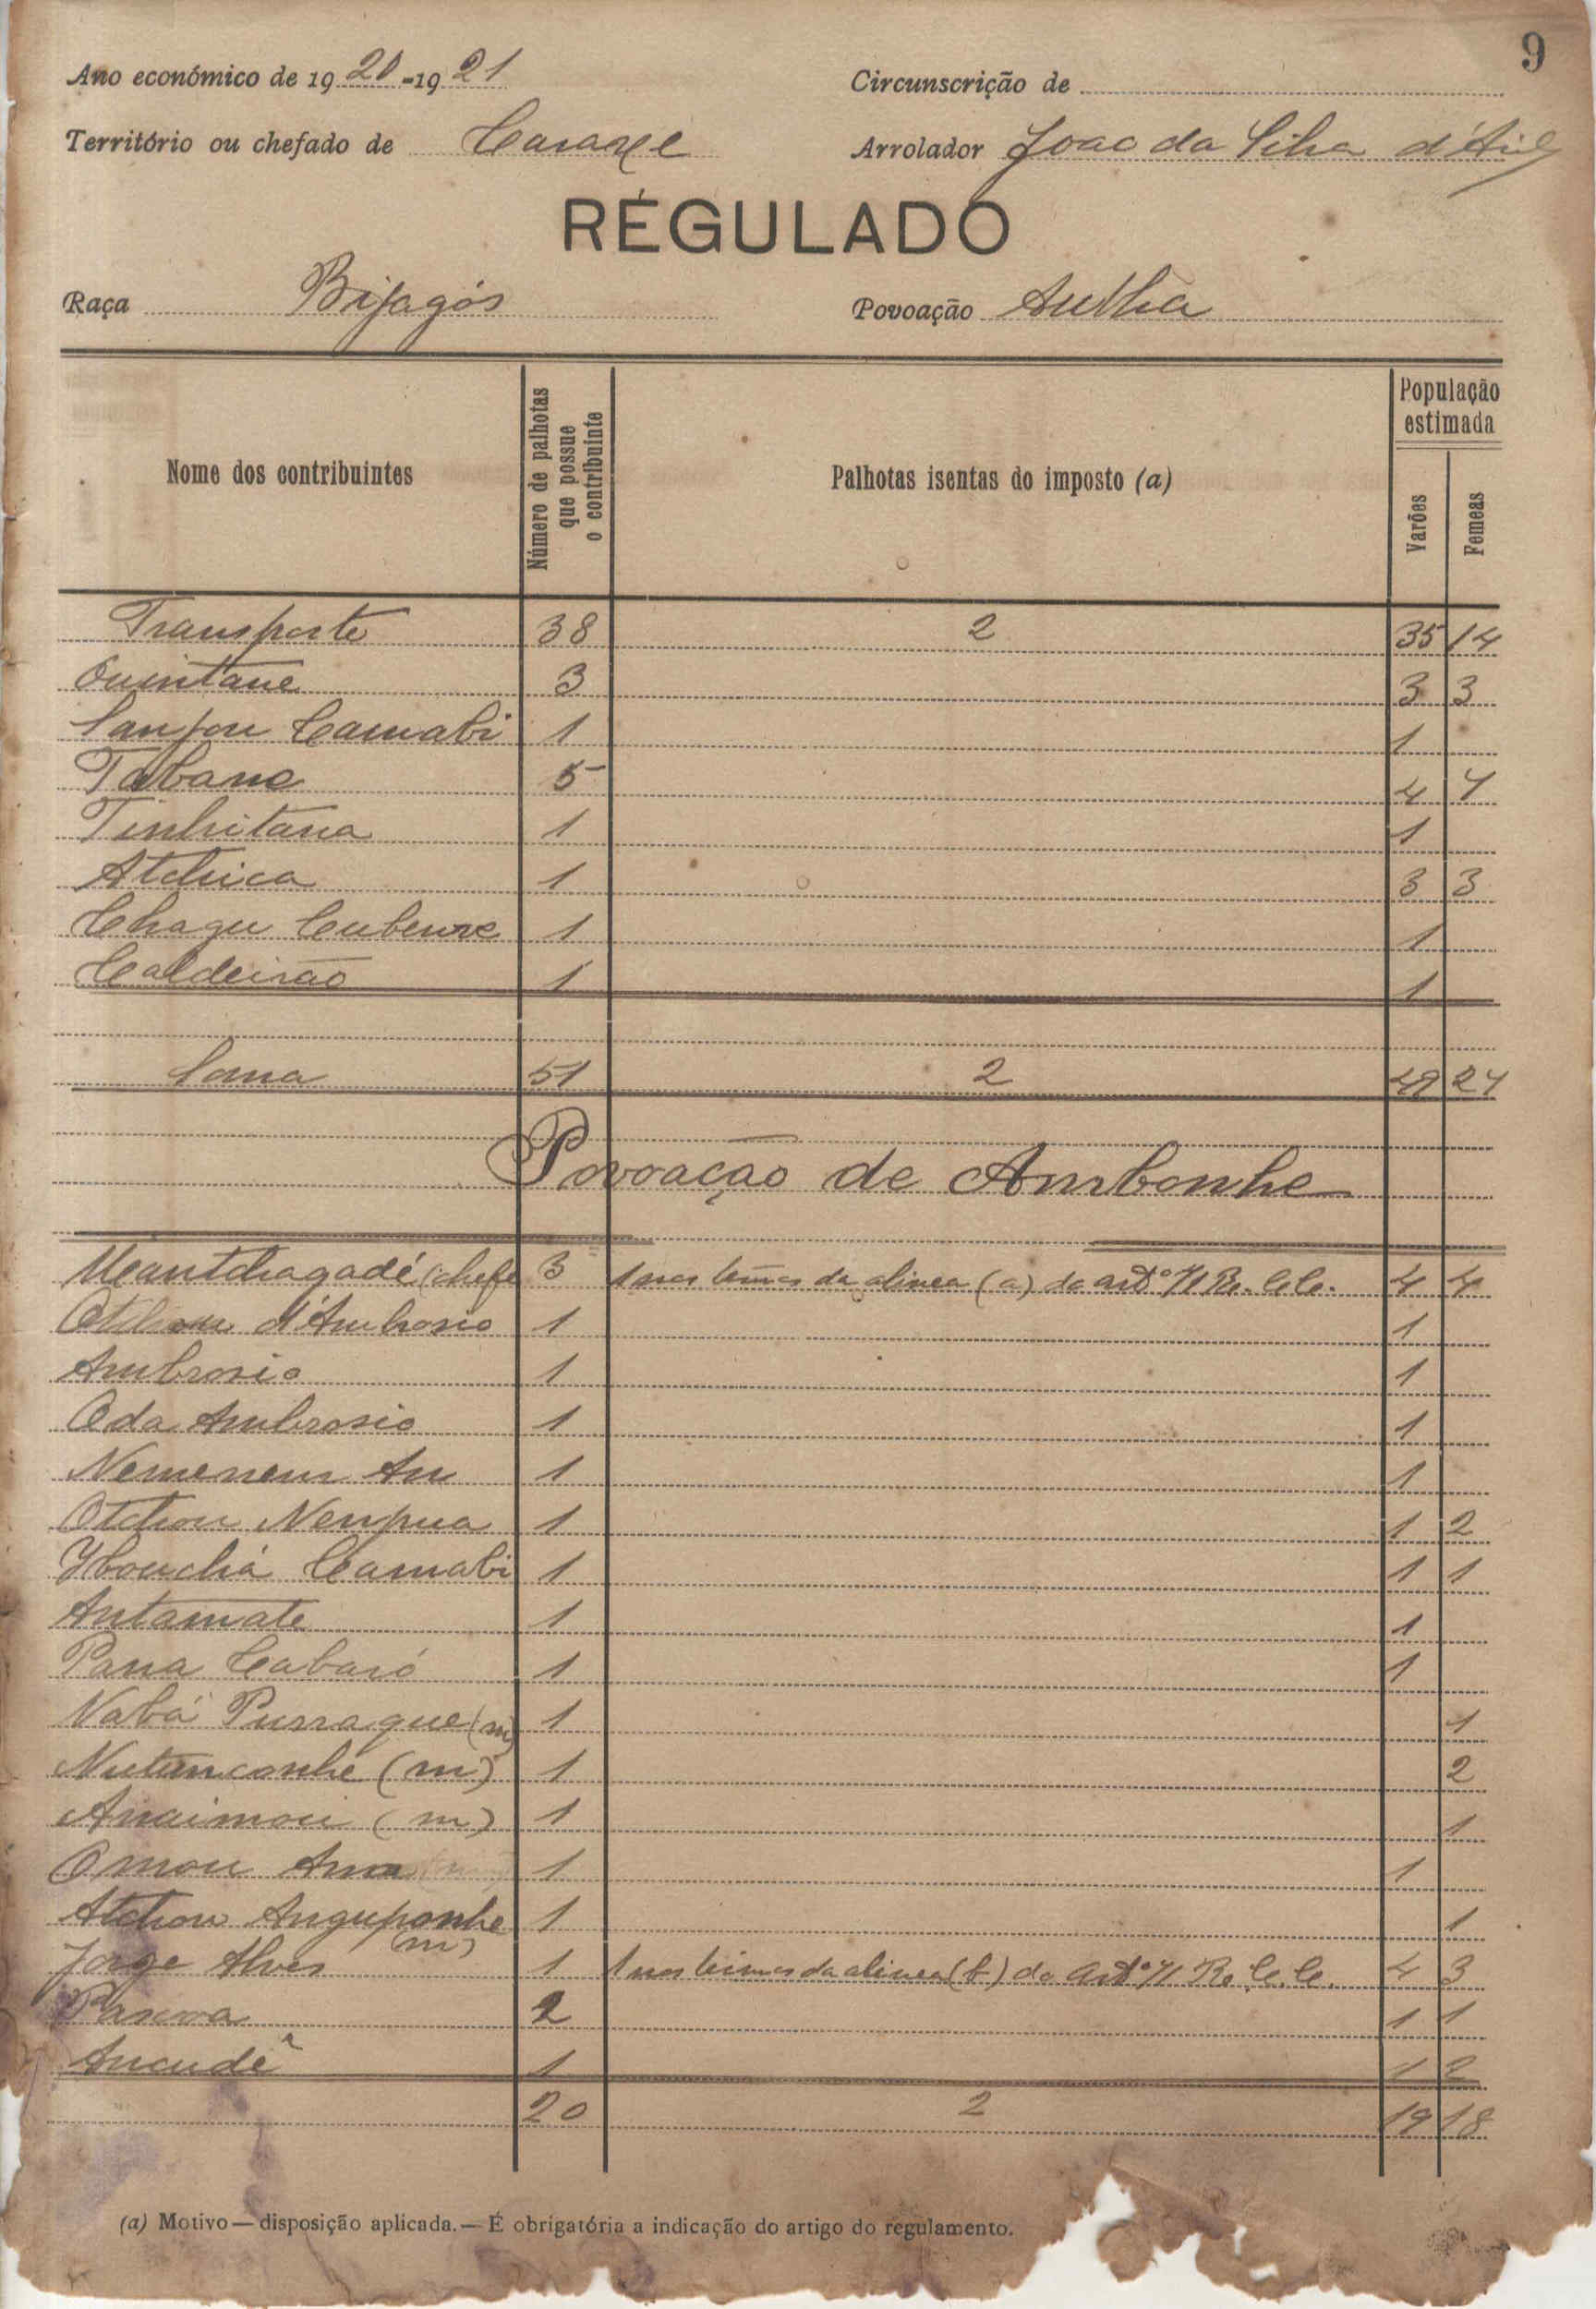 9
Ano económico de 1920-1921 Circunscrição de
Território ou chefado de Caraxe Arrolador Joao da Silva
REGULADO
Raça Bijagós Povoação
Nome dos contribuintes Número de palhotas que possue o contribuinte Palhotas isentas do imposto (a) População estimada Varões Femeas
Transporte 38 2 35 14
Quintane 3 3 3
Canjou Camabi 1 1
Tabane 5 4 4
Tinhitana 1 1
Atchica 1 3 3
Chagu 1 1
Caldeirão 1 1
Soma 51 2 49 24
Povoação de Ambonhe
Meantchagadé (chefe 3 1 nos termos da alinea (a) do artº 71 Re. C. C. 4 4
Otchou d'Ambrosio 1 1
Ambrosio 1 1
Oda Ambrosio 1 1
Nemenem An 1 1
Otchou Nempua 1 1 2
Camabi 1 1 1
Antamate 1 1
Pana Cabaró 1 1
Nabá Purraque (m) 1 1
Nutunconhe (m) 1 2
Anaimou (m) 1 1
Omou 1 1
Atchou Anguponhe (m) 1 1
Jorge Alves 1 1 nos termos da alinea (b) do artº 71 Re. C. C. 4 3
Pascoa 2 1 1
Ancudê 1 1 2
20 2 19 18
(a) Motivo — disposição aplicada. — É obrigatória a indicação do artigo do regulamento.